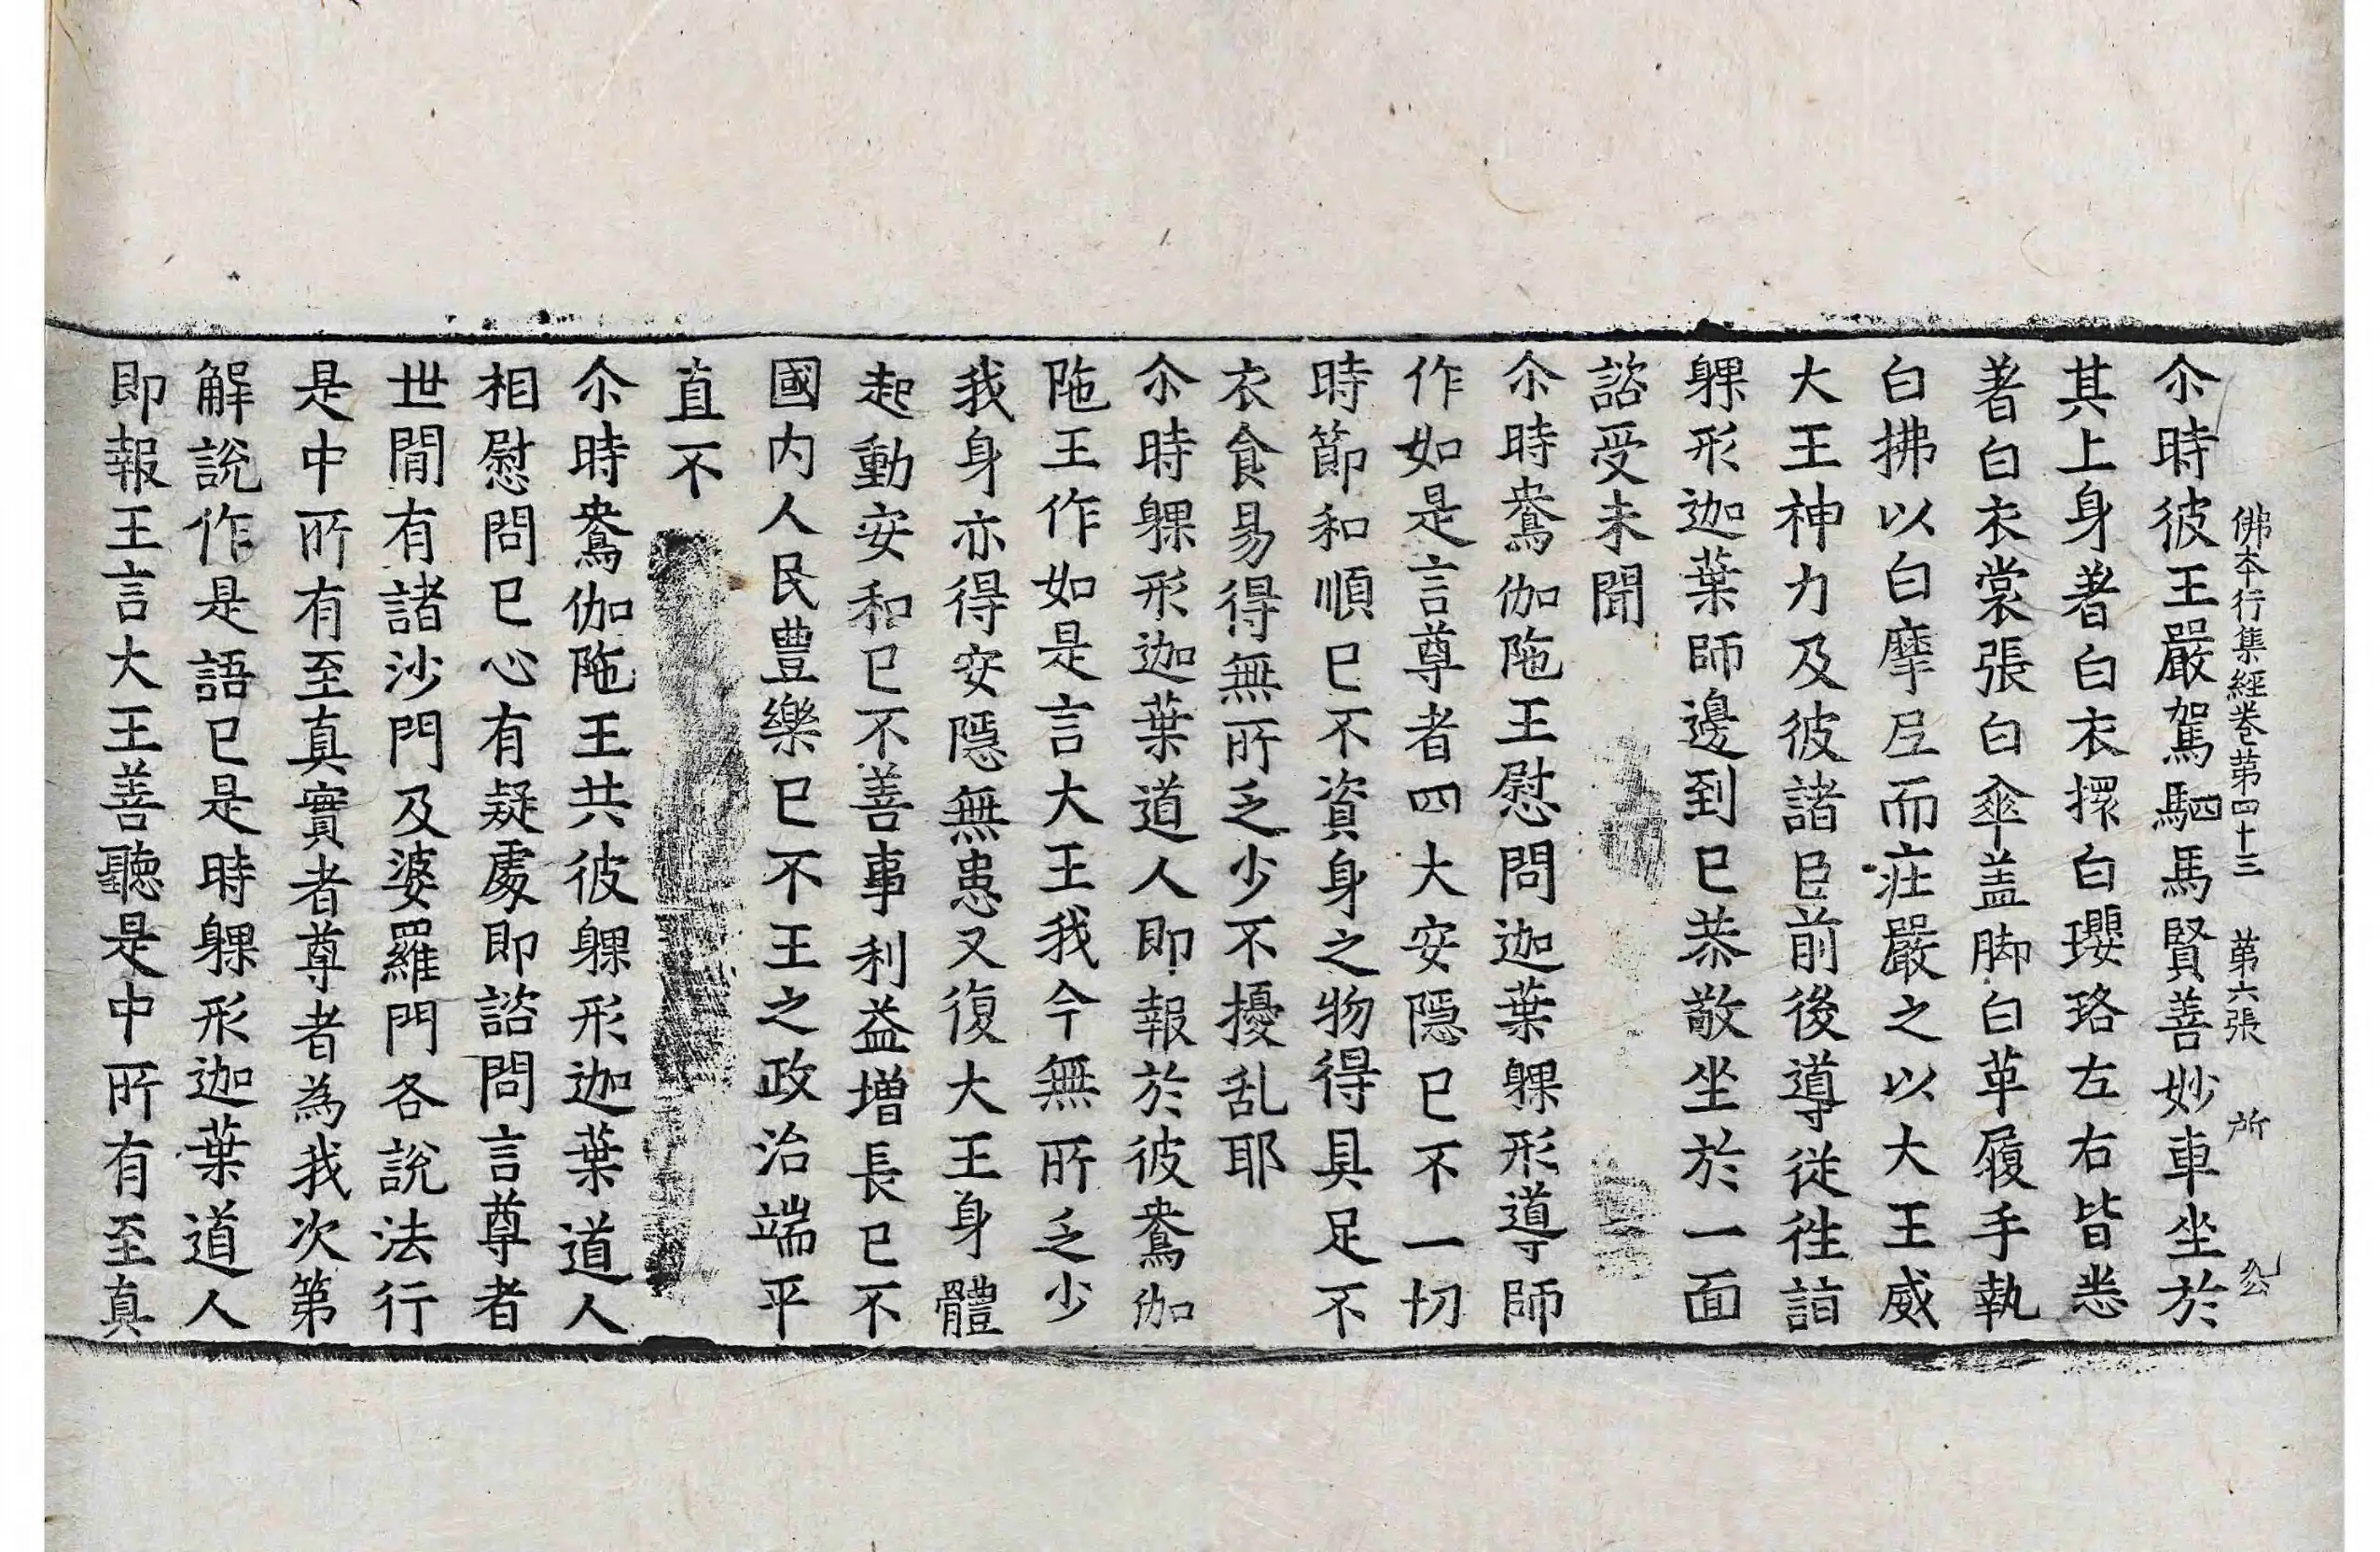 佛本行集經卷第四十三 第六張 所 公
尒時彼王嚴駕駟馬賢善妙車坐於
其上身著白衣擐白瓔珞左右皆悉
著白衣裳張白傘盖脚白革履手執
白拂以白摩𡰱而疰嚴之以大王威
大王神力及彼諸臣前後導從徃詣
躶形迦葉師邊到已恭敬坐於一面
諮受未聞
尒時鴦伽陁王慰問迦葉躶形導師
作如是言尊者四大安隱已不一切
時節和順已不資身之物得具足不
衣食易得無所乏少不擾乱耶
尒時躶形迦葉道人即報於彼鴦伽
陁王作如是言大王我今無所乏少
我身亦得安隱無患又復大王身體
起動安和已不善事利益增長已不
國内人民豊樂已不王之政治端平
直不
尒時鴦伽陁王共彼躶形迦葉道人
相慰問已心有疑處即諮問言尊者
世間有諸沙門及婆羅門各說法行
是中所有至真實者尊者為我次第
解說作是語已是時躶形迦葉道人
即報王言大王善聽是中所有至真